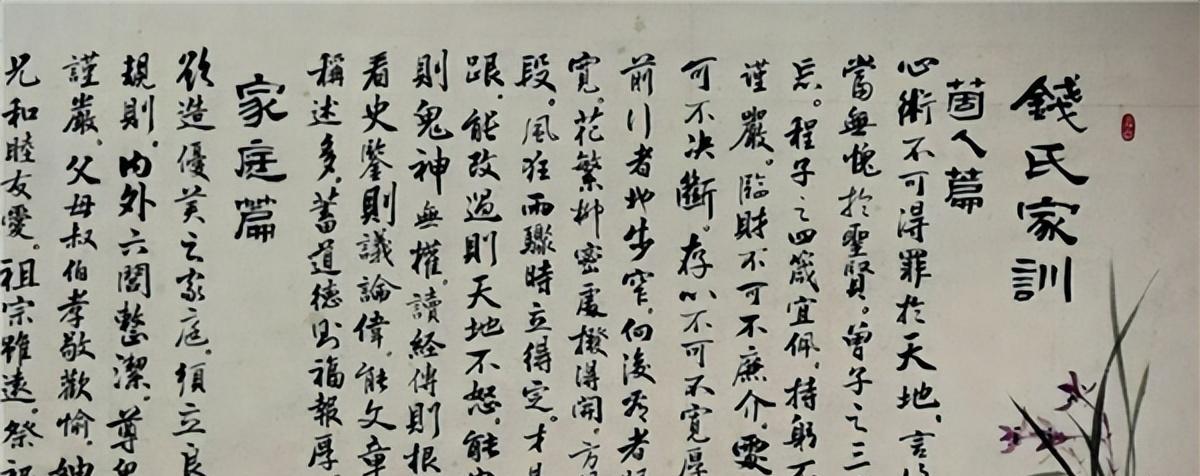 錢氏家訓
箇人篇
心術不可得罪於天地,言
當無愧於聖賢。曾子之三
忘。程子之四箴宜佩。持躬不
謹嚴。臨財不可不廉介。處
可不决斷。存心不可不寬厚
前行者地步窄,向後看者
寬。花繁柳密處撥得開,方
段。風狂雨驟時立得定。才
跟。能改過則天地不怒。能
則鬼神無權。讀経傳則根
看史鑒則議論偉。能文章
稱述多。蓄道德則福報厚
家庭篇
欲造優美之家庭,須立良
規則。內外六閭整潔。尊
謹嚴。父母叔伯孝敬歡愉。妯
兄和睦友愛。祖宗雖遠。祭